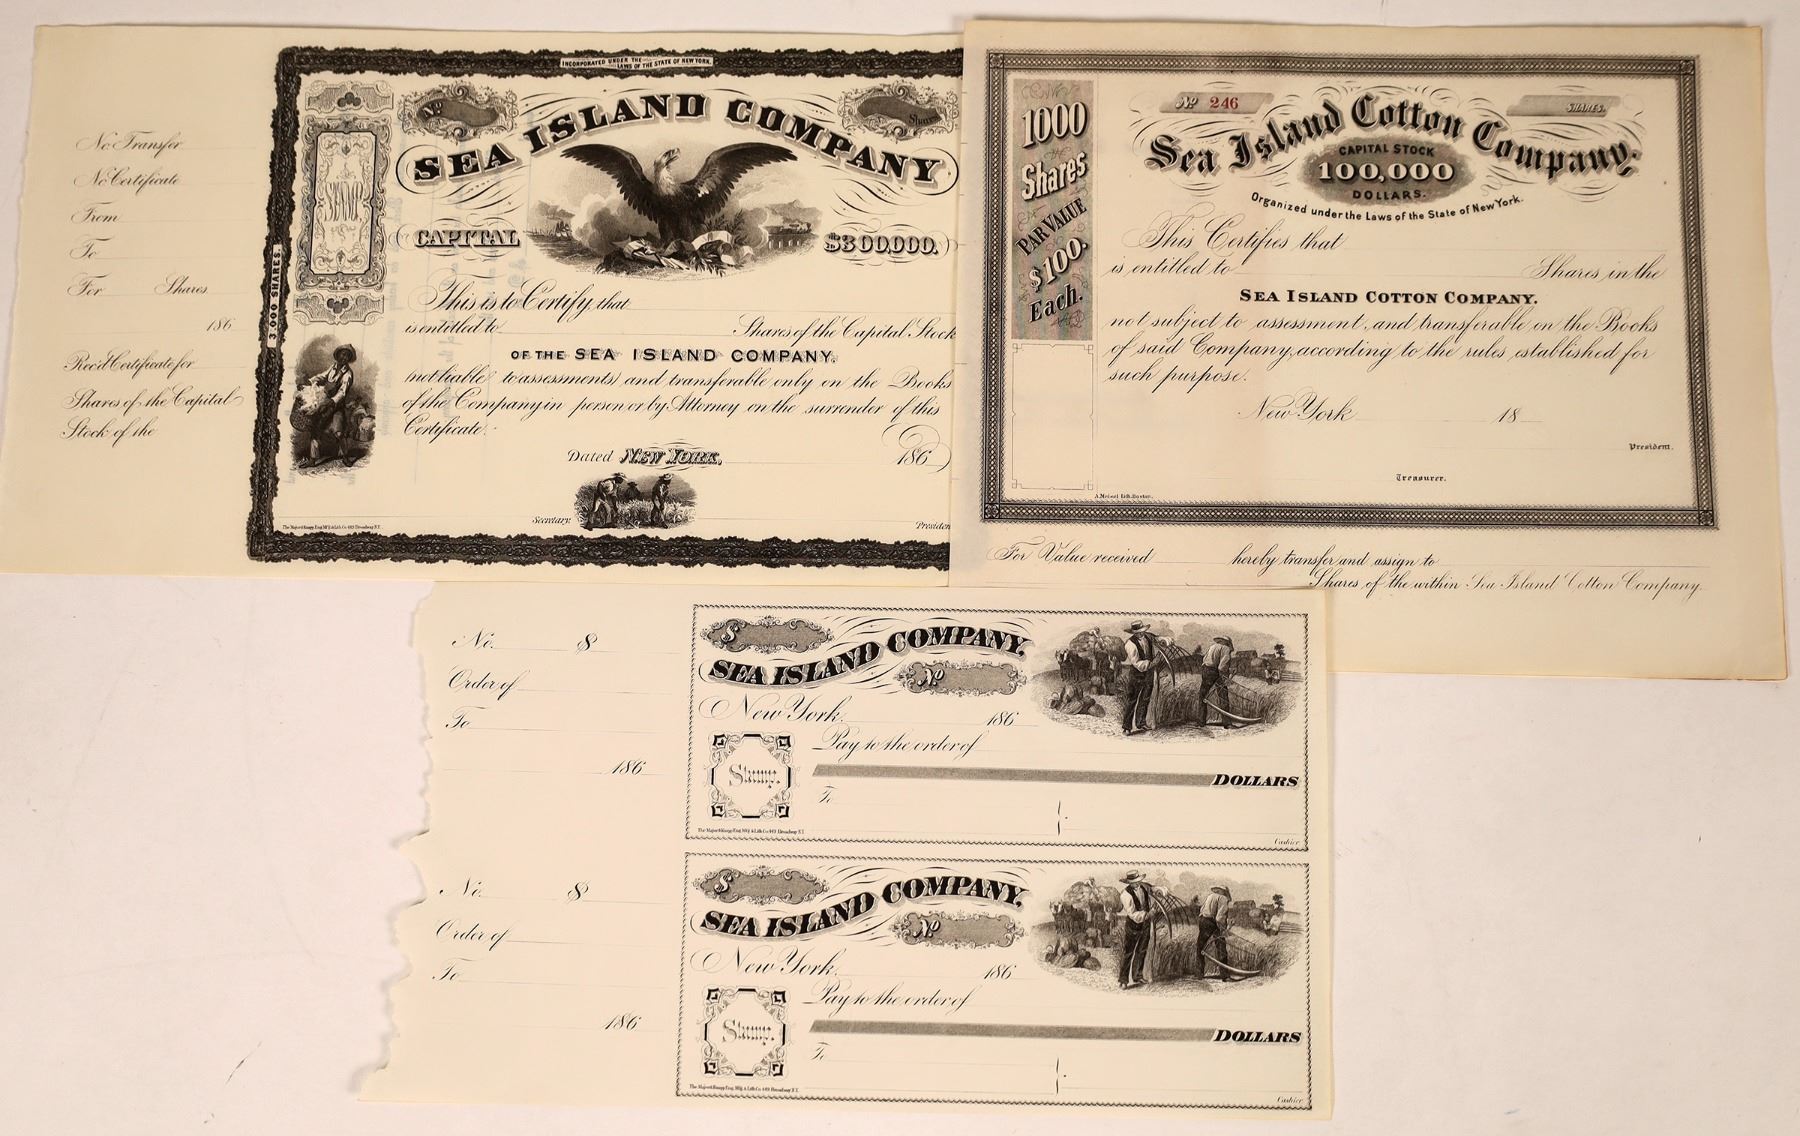 No. Transfer
No. Certificate
From
To
For Shares
186
Rec'd Certificate for
Shares of the Capital
Stock of the
INCORPORATED UNDER THE LAWS OF THE STATE OF NEW YORK.
No
Shares
SEA ISLAND COMPANY
CAPITAL $300,000.
3,000 SHARES.
STAMP.
This is to Certify that
is entitled to Shares of the Capital Stock
OF THE SEA ISLAND COMPANY.
(not liable to assessments) and transferable only on the Books
of the Company in person or by Attorney on the surrender of this
Certificate.
Dated NEW YORK, 186
Secretary. Presiden
The Major & Knapp Eng. Mfg. & Lith. Co. 449 Broadway N.Y.
1000
Shares
PAR VALUE
$100.
Each.
No 246
SHARES.
Sea Island Cotton Company.
CAPITAL STOCK
100,000
DOLLARS.
Organized under the Laws of the State of New York.
This Certifies that
is entitled to Shares, in the
SEA ISLAND COTTON COMPANY.
not subject to assessment, and transferable on the Books
of said Company, according to the rules, established for
such purpose.
New York 18
President.
Treasurer.
A. Meisel Lith. Boston.
For Value received hereby transfer and assign to
Shares of the within Sea Island Cotton Company.
No. $
Order of
To
186
$
SEA ISLAND COMPANY,
No
New York, 186
Pay to the order of
DOLLARS
Stamp.
To
The Major & Knapp Eng. Mfg. & Lith. Co. 449 Broadway N.Y.
Cashier.
No. $
Order of
To
186
$
SEA ISLAND COMPANY,
No
New York, 186
Pay to the order of
DOLLARS
Stamp.
To
The Major & Knapp Eng. Mfg. & Lith. Co. 449 Broadway N.Y.
Cashier.